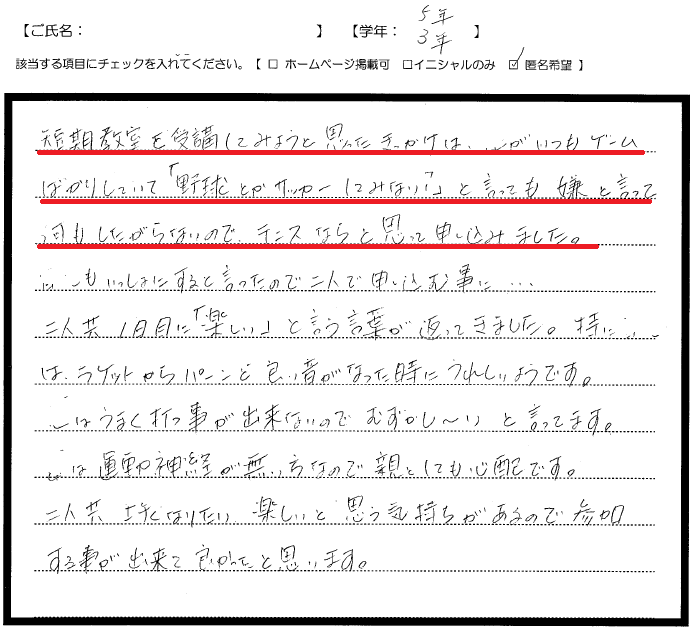 【ご氏名： 】 【学年： 5年 3年 】
該当する項目にチェックを入れてください。【 □ ホームページ掲載可 □イニシャルのみ ☑ 匿名希望 】
短期教室を受講してみようと思ったきっかけは、 がいつもゲーム
ばかりしていて「野球とかサッカーしてみない?」と言っても嫌と言って
何もしたがらないので、テニスならと思って申し込みました。
もいっしょにすると言ったので二人で申し込む事に…
二人共 1日目に「楽しい」と言う言葉が返ってきました。特に
は、ラケットからパーンと良い音がなった時にうれしいようです。
はうまく打つ事が出来ないのでむずかし〜い と言ってます。
は運動神経が無い方なので親としても心配です。
二人共 上手くなりたい 楽しいと思う気持ちがあるので参加
する事が出来て良かったと思います。